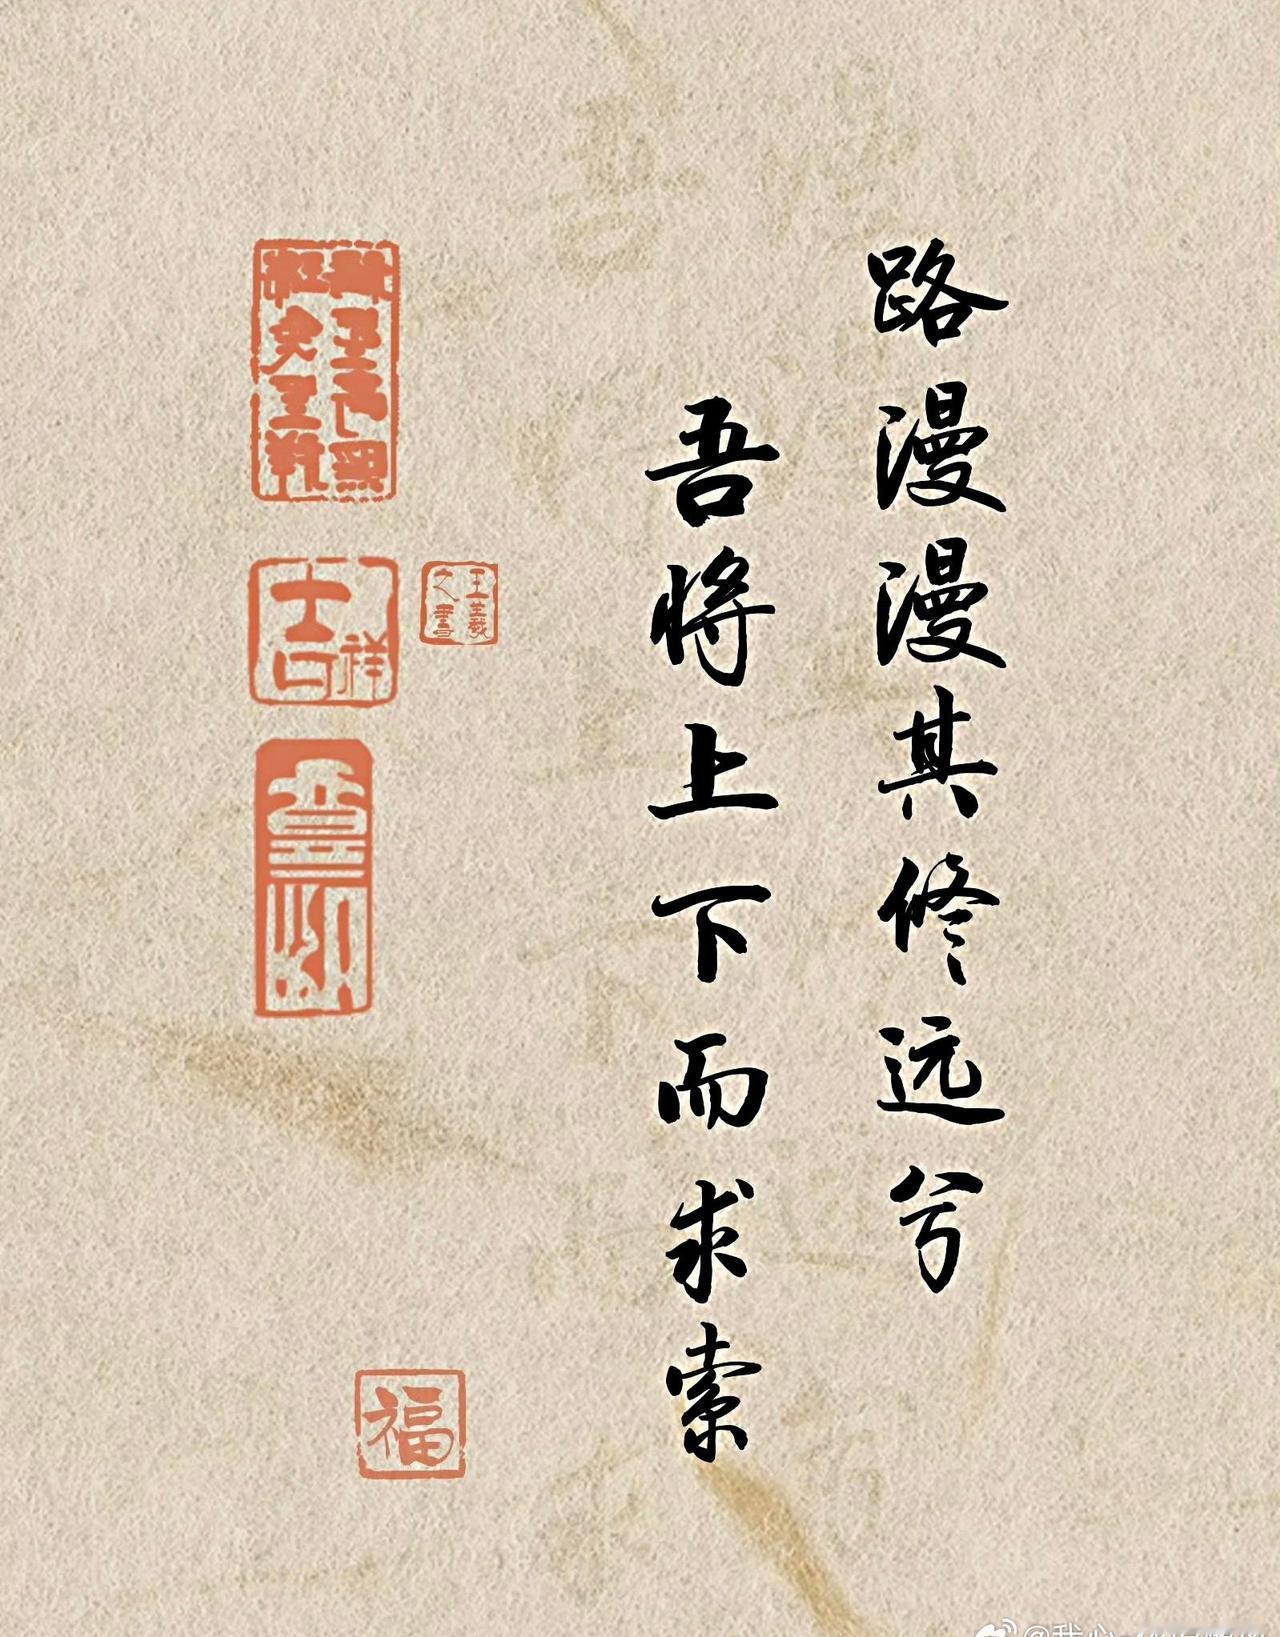 路漫漫其修远兮
吾将上下而求索
王羲之書
吉祥
福
@我心